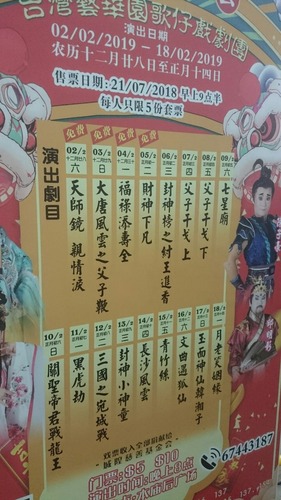 台灣藝華園歌仔戲劇團
演出日期
02/02/2019 - 18/02/2019
农历十二月廿八日至正月十四日
售票日期: 21/07/2018 早上9点半
每人只限5份套票
演出劇目
免费 免费 免费 免费
02/2 六 天師鏡 親情淚
03/2 日 大唐風雲之父子鞭
04/2 一 福祿添壽全
05/2 二 財神下凡
06/2 三 封神榜之紂王進香
07/2 四 父子干戈 上
08/2 五 父子干戈 下
09/2 六 七星廟
10/2 日 關聖帝君戰龍王
11/2 一 黑虎劫
12/2 二 三國之宛城戰
13/2 三 封神小神童
14/2 四 長沙風雲
15/2 五 青竹絲
16/2 六 文曲遇狐仙
17/2 日 玉面神仙韓湘子
18/2 一 月老笑姻緣
戏票收入全部捐献给
城隍慈善基金会
67443187
门票: $5 $10